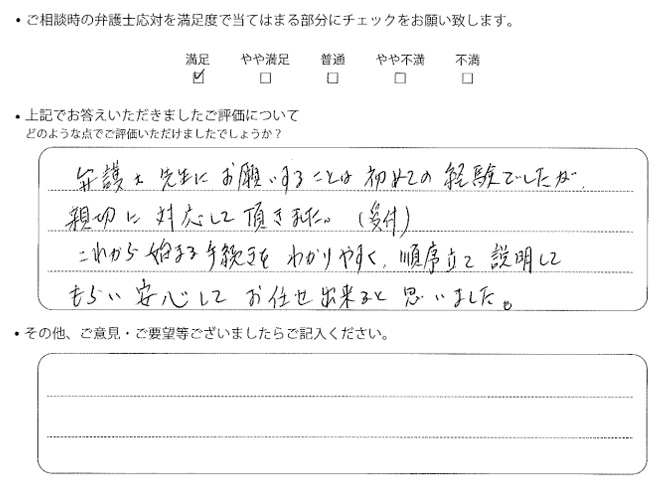 ・ご相談時の弁護士応対を満足度で当てはまる部分にチェックをお願い致します。
満足 やや満足 普通 やや不満 不満
・上記でお答えいただきましたご評価について
どのような点でご評価いただけましたでしょうか？
弁護士先生にお願いすることは初めての経験でしたが、
親切に対応して頂きました。(受付)
これから始まる手続きをわかりやすく、順序立て説明して
もらい安心してお任せ出来ると思いました。
・その他、ご意見・ご要望等ございましたらご記入ください。